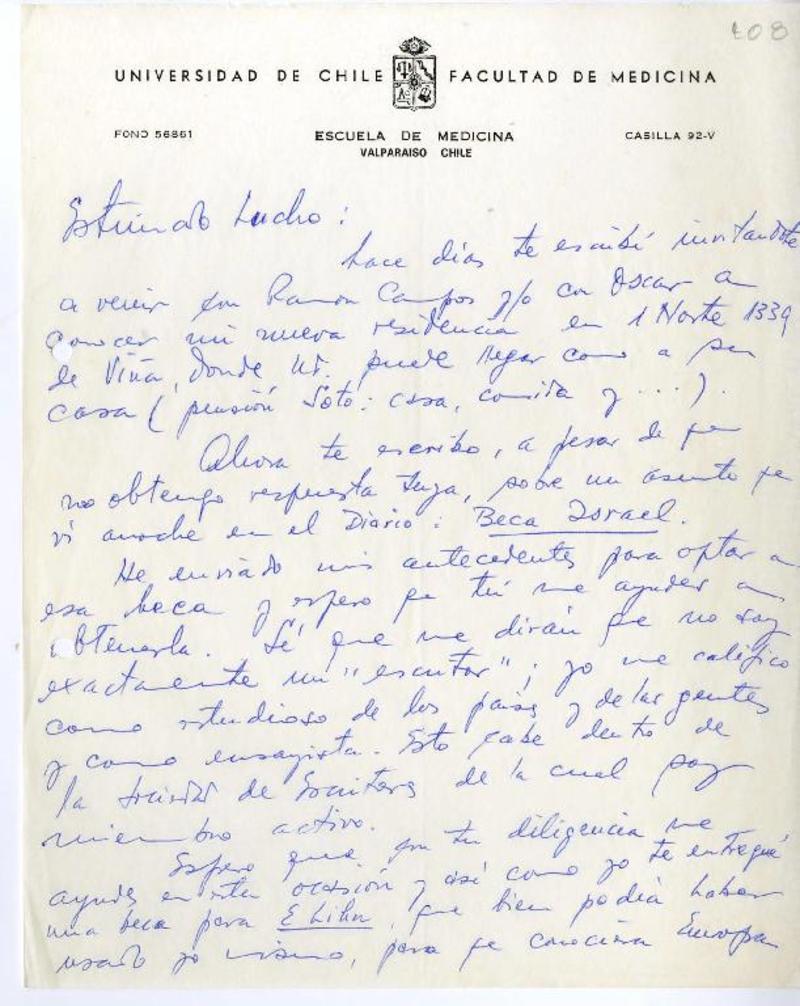 408
UNIVERSIDAD DE CHILE FACULTAD DE MEDICINA
FONO 56861 ESCUELA DE MEDICINA CASILLA 92-V
VALPARAISO CHILE
Estimado Lucho:
hace días te escribí invitandote
a venir con Ramon Campos y/o con Oscar a
conocer mi nueva residencia en 1 Norte 1339
de Viña, donde Ud. puede llegar como a su
casa (pensión Soto: casa, comida y ...).
Ahora te escribo, a pesar de que
no obtengo respuesta tuya, sobre un asunto que
vi anoche en el Diario: Beca Israel.
He enviado mis antecedentes para optar a
esa beca y espero que tú me ayudes a
obtenerla. Sé que me dirán que no soy
exactamente un "escritor"; yo me califico
como estudioso de los países y de las gentes
y como ensayista. Esto cabe dentro de
la Sociedad de Escritores de la cual soy
miembro activo.
Espero que con tu diligencia me
ayudes en esta ocasión y así como yo te entregué
una beca para E Lihn, que bien podía haber
usado yo mismo, para que conociera Europa